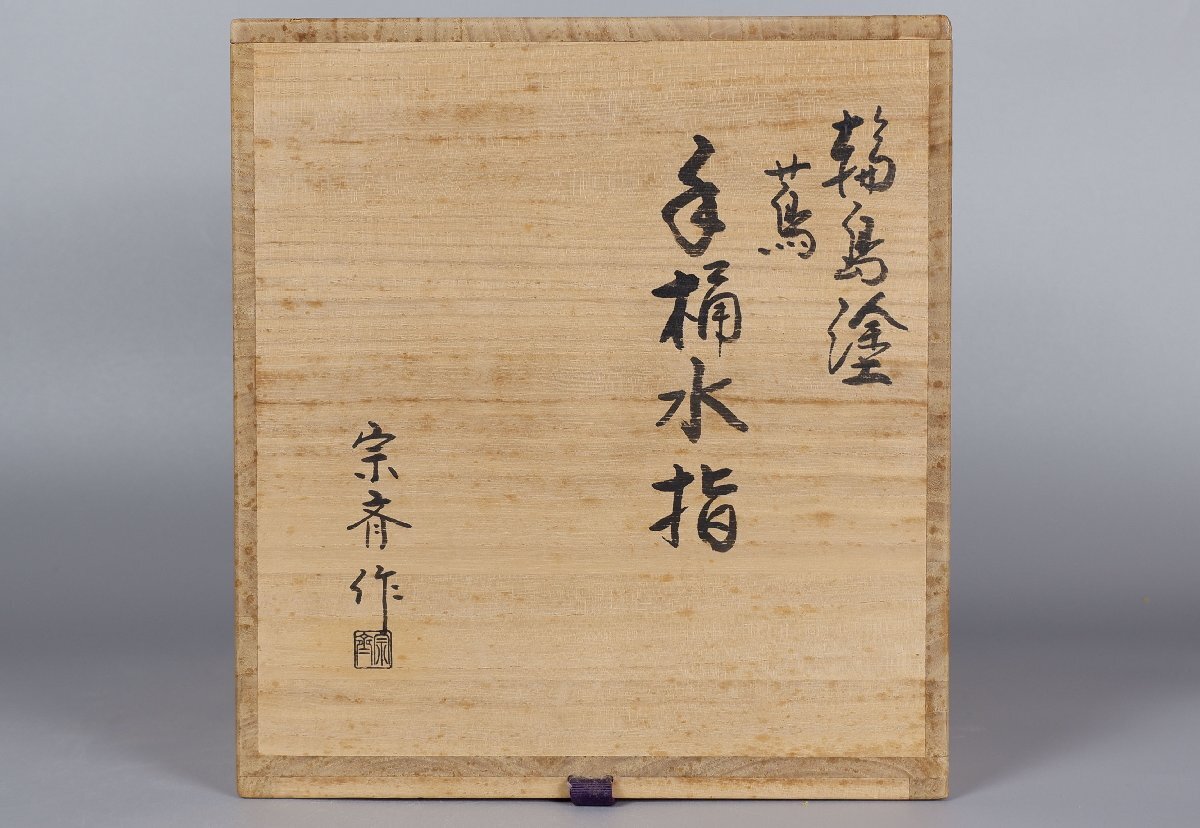 輪島塗
蔦
手桶水指
宗斉作
宗齊